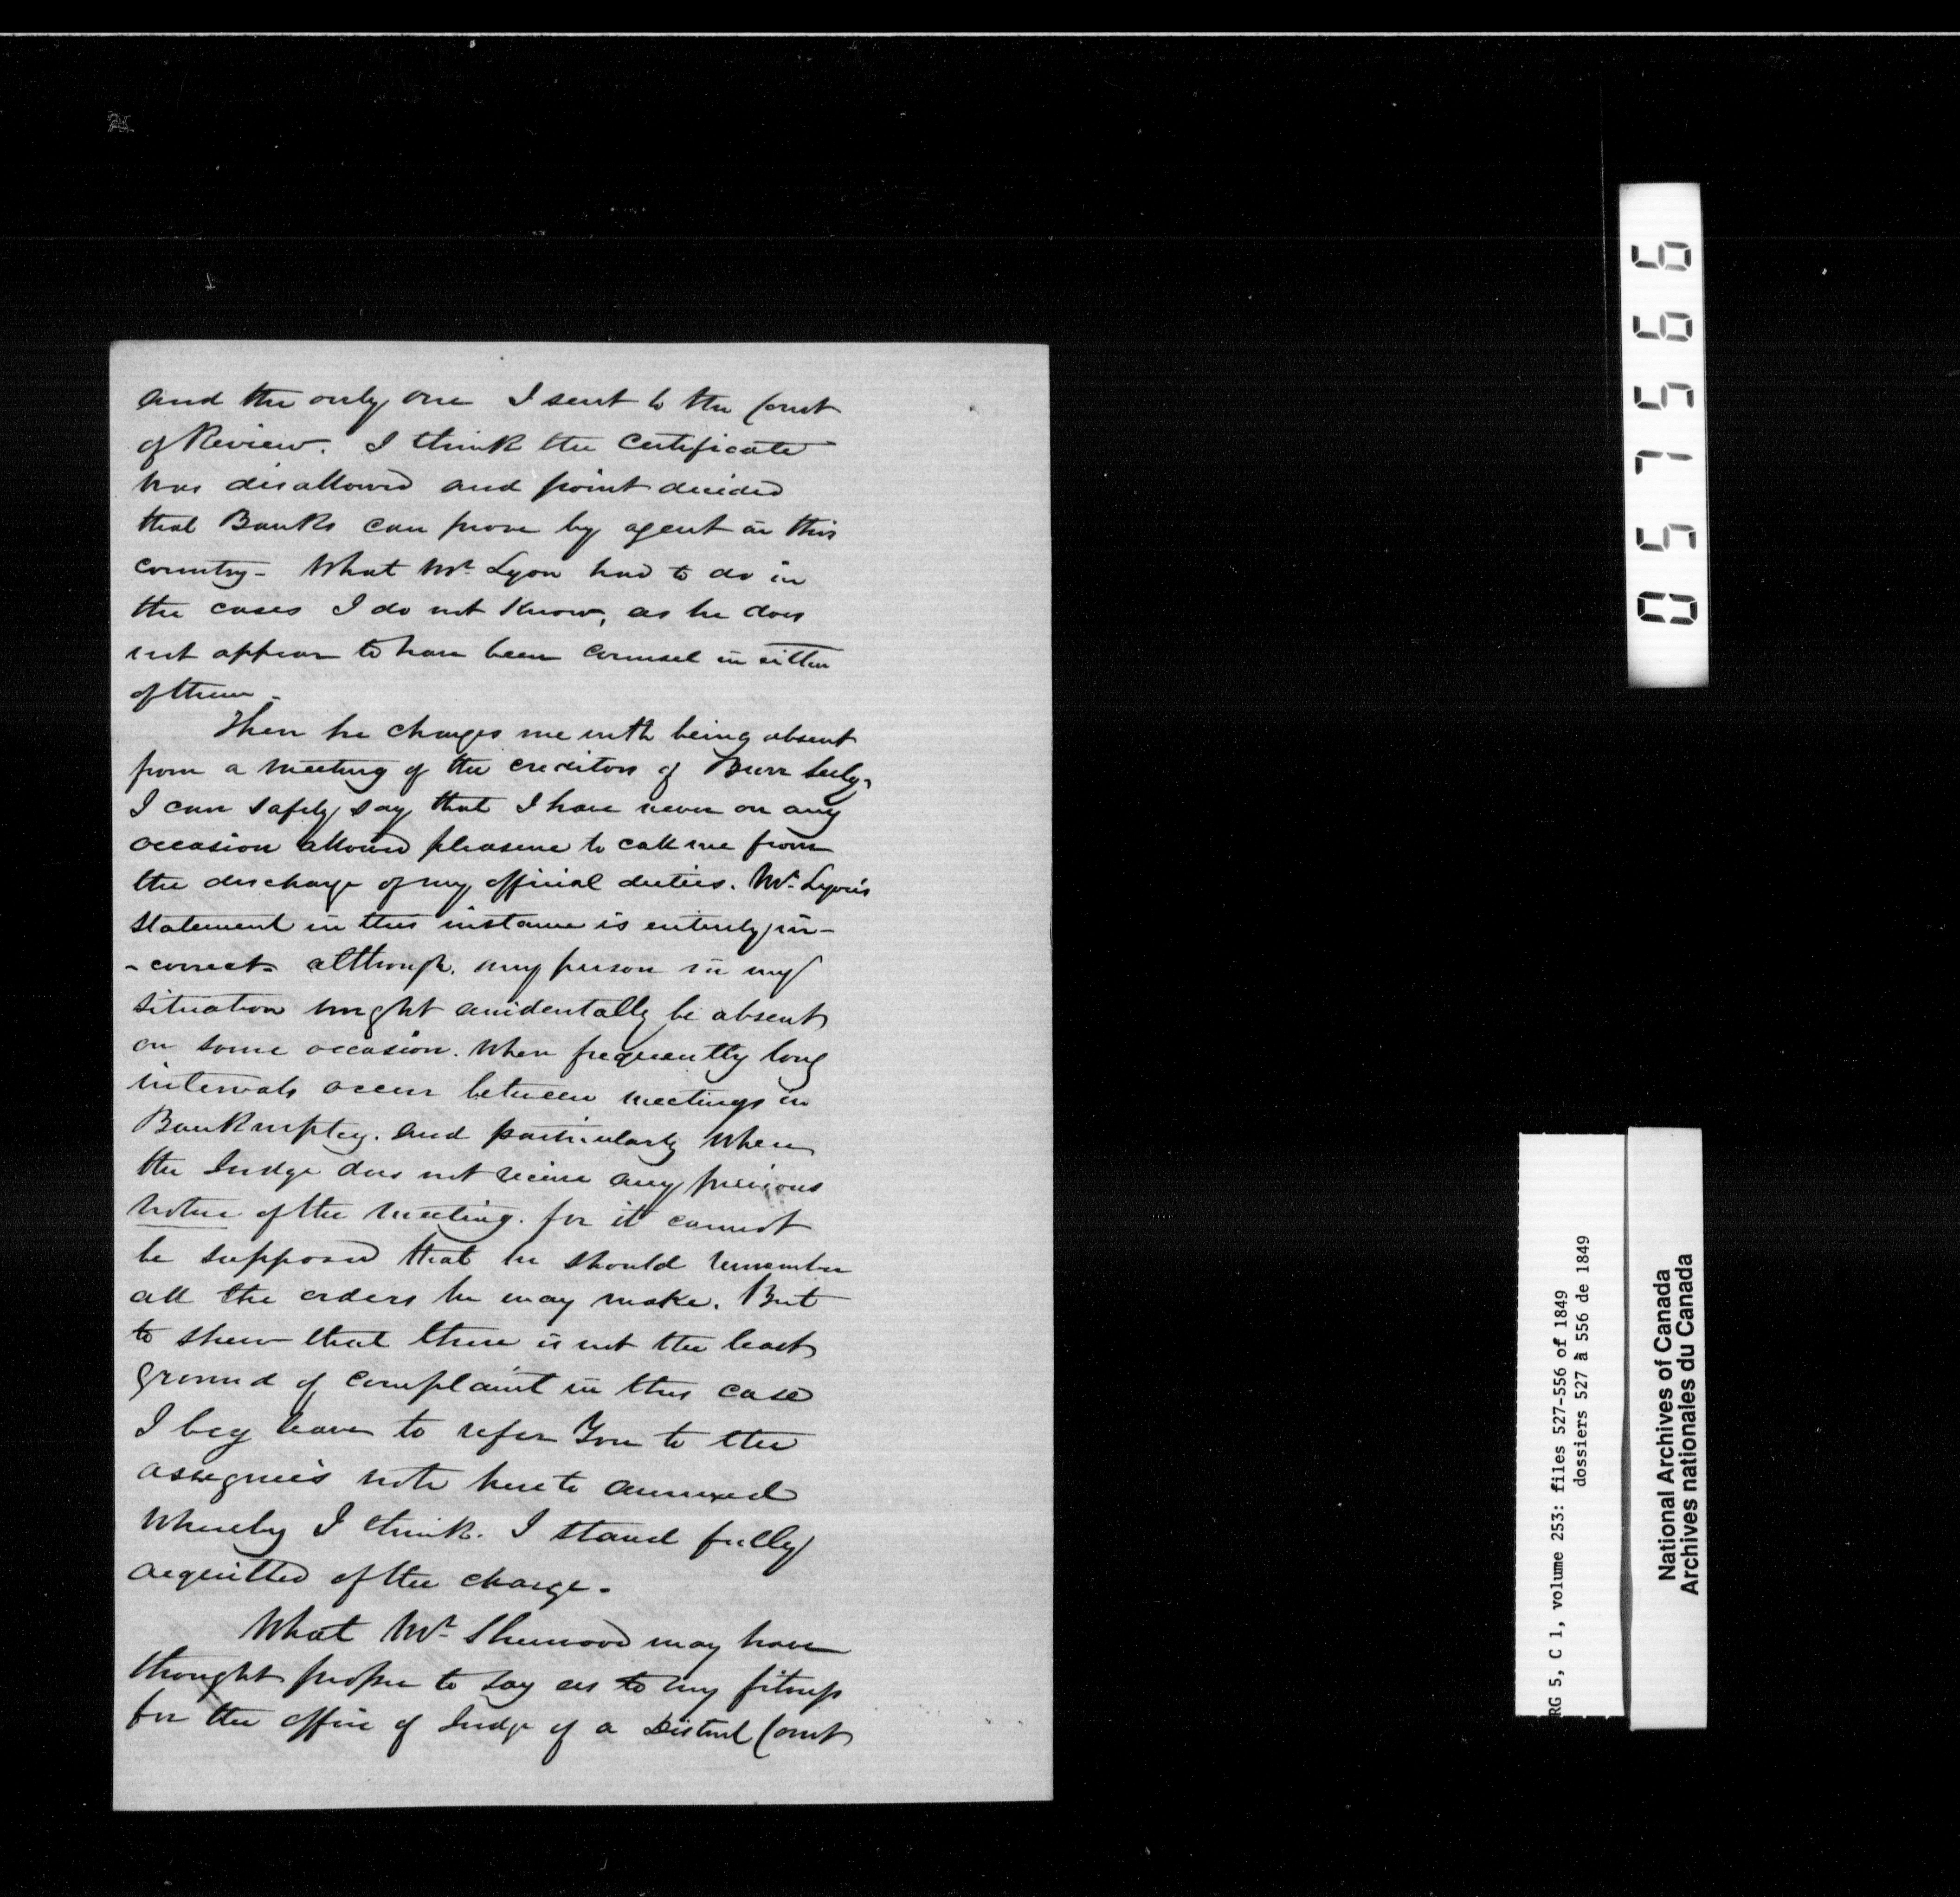 and the only one I sent to the Court
of Review. I think the Certificate
was disallowed and point decided
that Banks can prove by agent in this
country - What Mr. Lyon had to do in
the cases I do not know, as he does
not appear to have been Counsel in either
of them -
Then he charges me with being absent
from a meeting of the creditors of Burr Seely,
I can safely say that I have never on any
occasion allowed pleasure to call me from
the discharge of my official duties. Mr. Lyon's
statement in this instance is entirely in-
-correct although. any person in my
situation might accidentally be absent
on some occasion. When frequently long
intervals occur between meetings in
Bankruptcy. and particularly when
the Judge does not receive any previous
notice of the meeting. for it cannot
be supposed that he should remember
all the orders he may make. But
to shew that there is not the least
ground of complaint in this case
I beg leave to refer You to the
assignee's note hereto annexed
whereby I think. I stand fully
acquitted of the charge -
What Mr. Sherwood may have
thought proper to say as to my fitness
for the office of Judge of a District Court
057566
RG 5, C 1, volume 253: files 527-556 of 1849
dossiers 527 à 556 de 1849
National Archives of Canada
Archives nationales du Canada